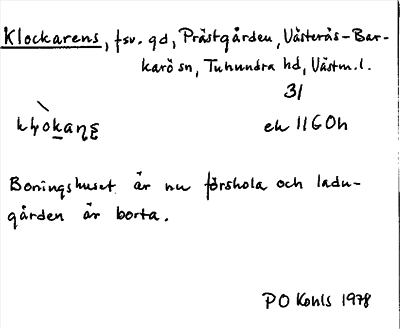 Klockarens, fsv. gd, Prästgården, Västerås-Bar-
karö sn, Tuhundra hd, Västm.l.
31
ek 11G0h
Boningshuset är nu förskola och ladu-
gården är borta.
PO Kohls 1978